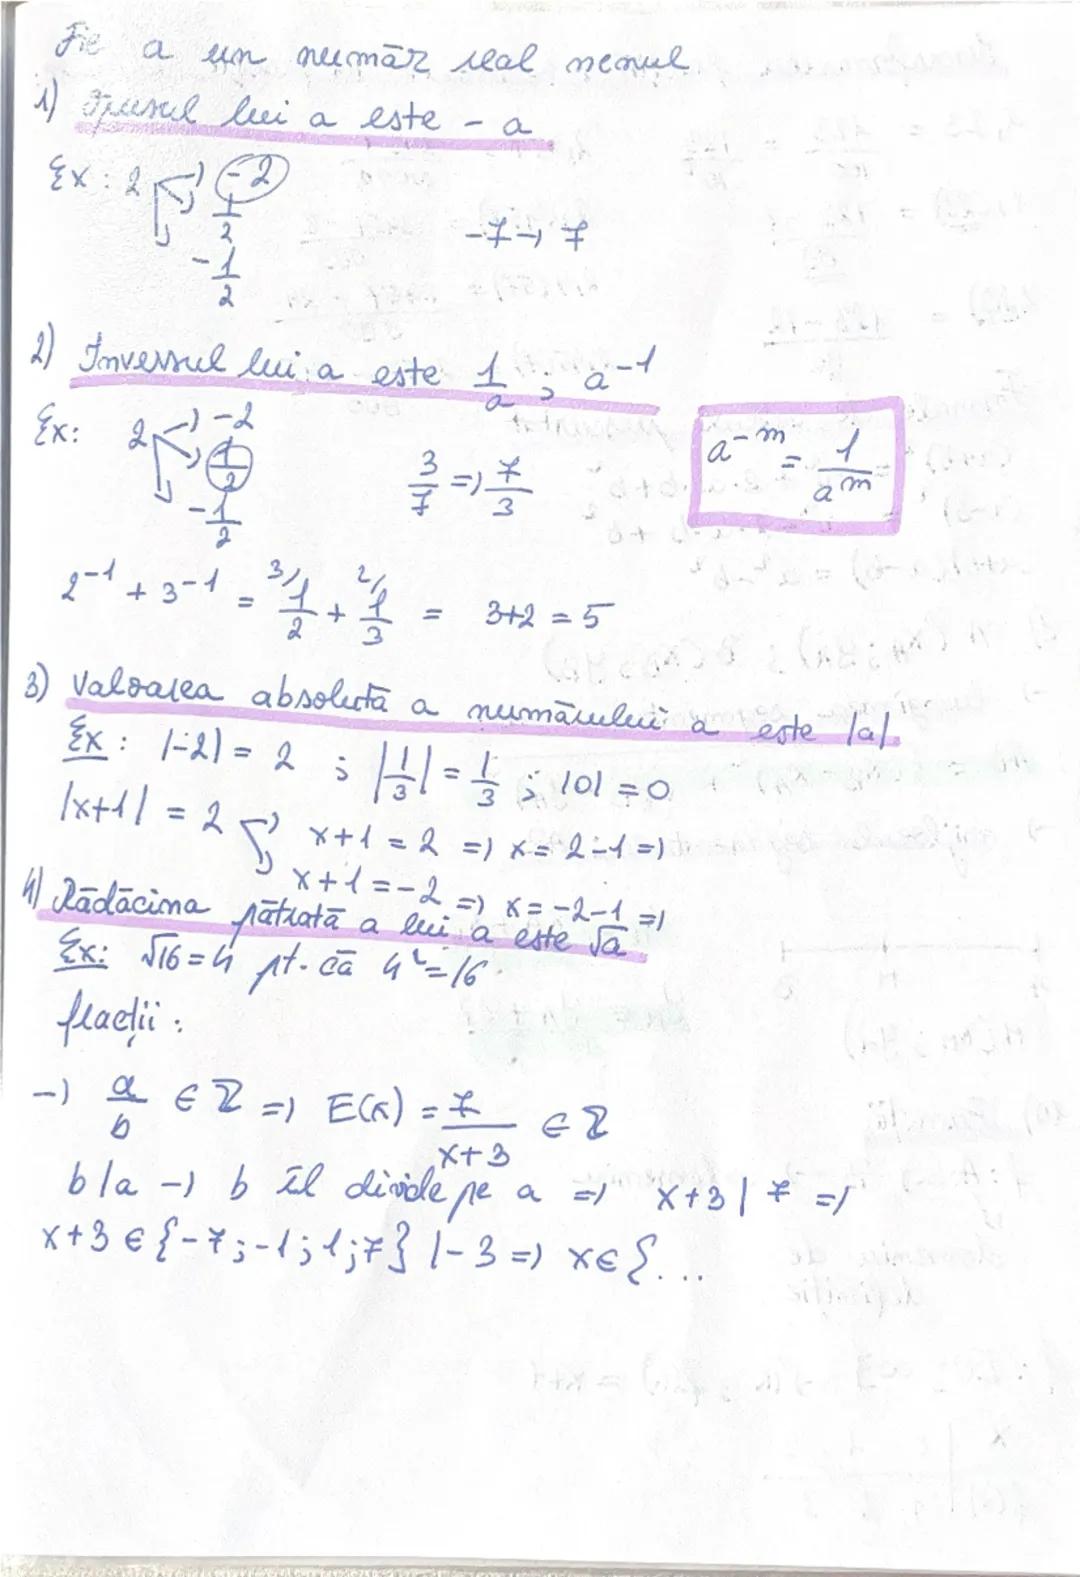 Fie a un număr real nenul
1) Opusul lui a este - a
Ex : 2 → -2
1/2
-1/2
-7 → 7
2) Inversul lui a este 1/a ; a^-1
Ex: 2 → -2
1/2
-1/2
3/7 => 7/3
a^-m = 1/a^m
2^-1 + 3^-1 = 3) 1/2 + 2) 1/3 = 3+2 = 5
3) Valoarea absolută a numărului a este |a|.
Ex : |-2| = 2 ; |1/3| = 1/3 ; |0| = 0
|x+1| = 2 → x+1 = 2 => x = 2-1 =>
x+1 = -2 => x = -2-1 =>
4) Rădăcina pătrată a lui a este √a
Ex: √16 = 4 pt. că 4² = 16
fracții :
→ a/b ∈ Z => E(x) = 7/(x+3) ∈ Z
b | a → b îl divide pe a => x+3 | 7 =>
x+3 ∈ {-7; -1; 1; 7} | -3 => x ∈ {...